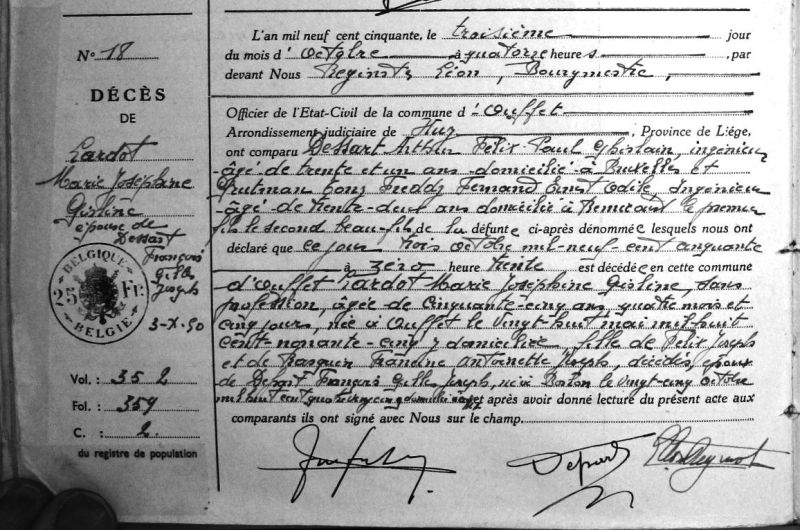 N° 18
DÉCÈS
DE
Lardot
Marie Joséphine
Gisline
épouse de
Dessart
François
Gilles
Joseph
BELGIQUE
25 Fr.
BELGIE
3-X-50
Vol. : 352
Fol. : 359
C. : 2
du registre de population
L'an mil neuf cent cinquante, le troisième jour
du mois d'octobre à quatorze heures, par
devant Nous Reginster Léon, Bourgmestre,
Officier de l'Etat-Civil de la commune d'Ouffet
Arrondissement judiciaire de Huy, Province de Liége,
ont comparu Dessart Arthur Félix Paul Ghislain, ingénieur
âgé de trente et un ans domicilié à Bruxelles et
Freddy Fernand Ernest Odile, Ingénieur
âgé de trente-deux ans domicilié à le premier
fils le second beau-fils de la défunte ci-après dénommée lesquels nous ont
déclaré que ce jour trois octobre mil-neuf cent cinquante
à zéro heure trente est décédée en cette commune
d'Ouffet Lardot Marie Joséphine Gisline, sans
profession, âgée de cinquante-cinq ans, quatre mois et
cinq jours, née à Ouffet le vingt-huit mai mil huit
cent-nonante-cinq y domiciliée, fille de Félix Joseph
et de Francine Antoinette Joseph, décédés, épouse
de Dessart François Gilles Joseph, né à le vingt-cinq octobre
mil huit cent quatre vingt cinq et après avoir donné lecture du présent acte aux
comparants ils ont signé avec Nous sur le champ.